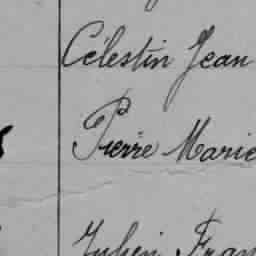 Célestin Jean
Pierre Marie
Julien Fran